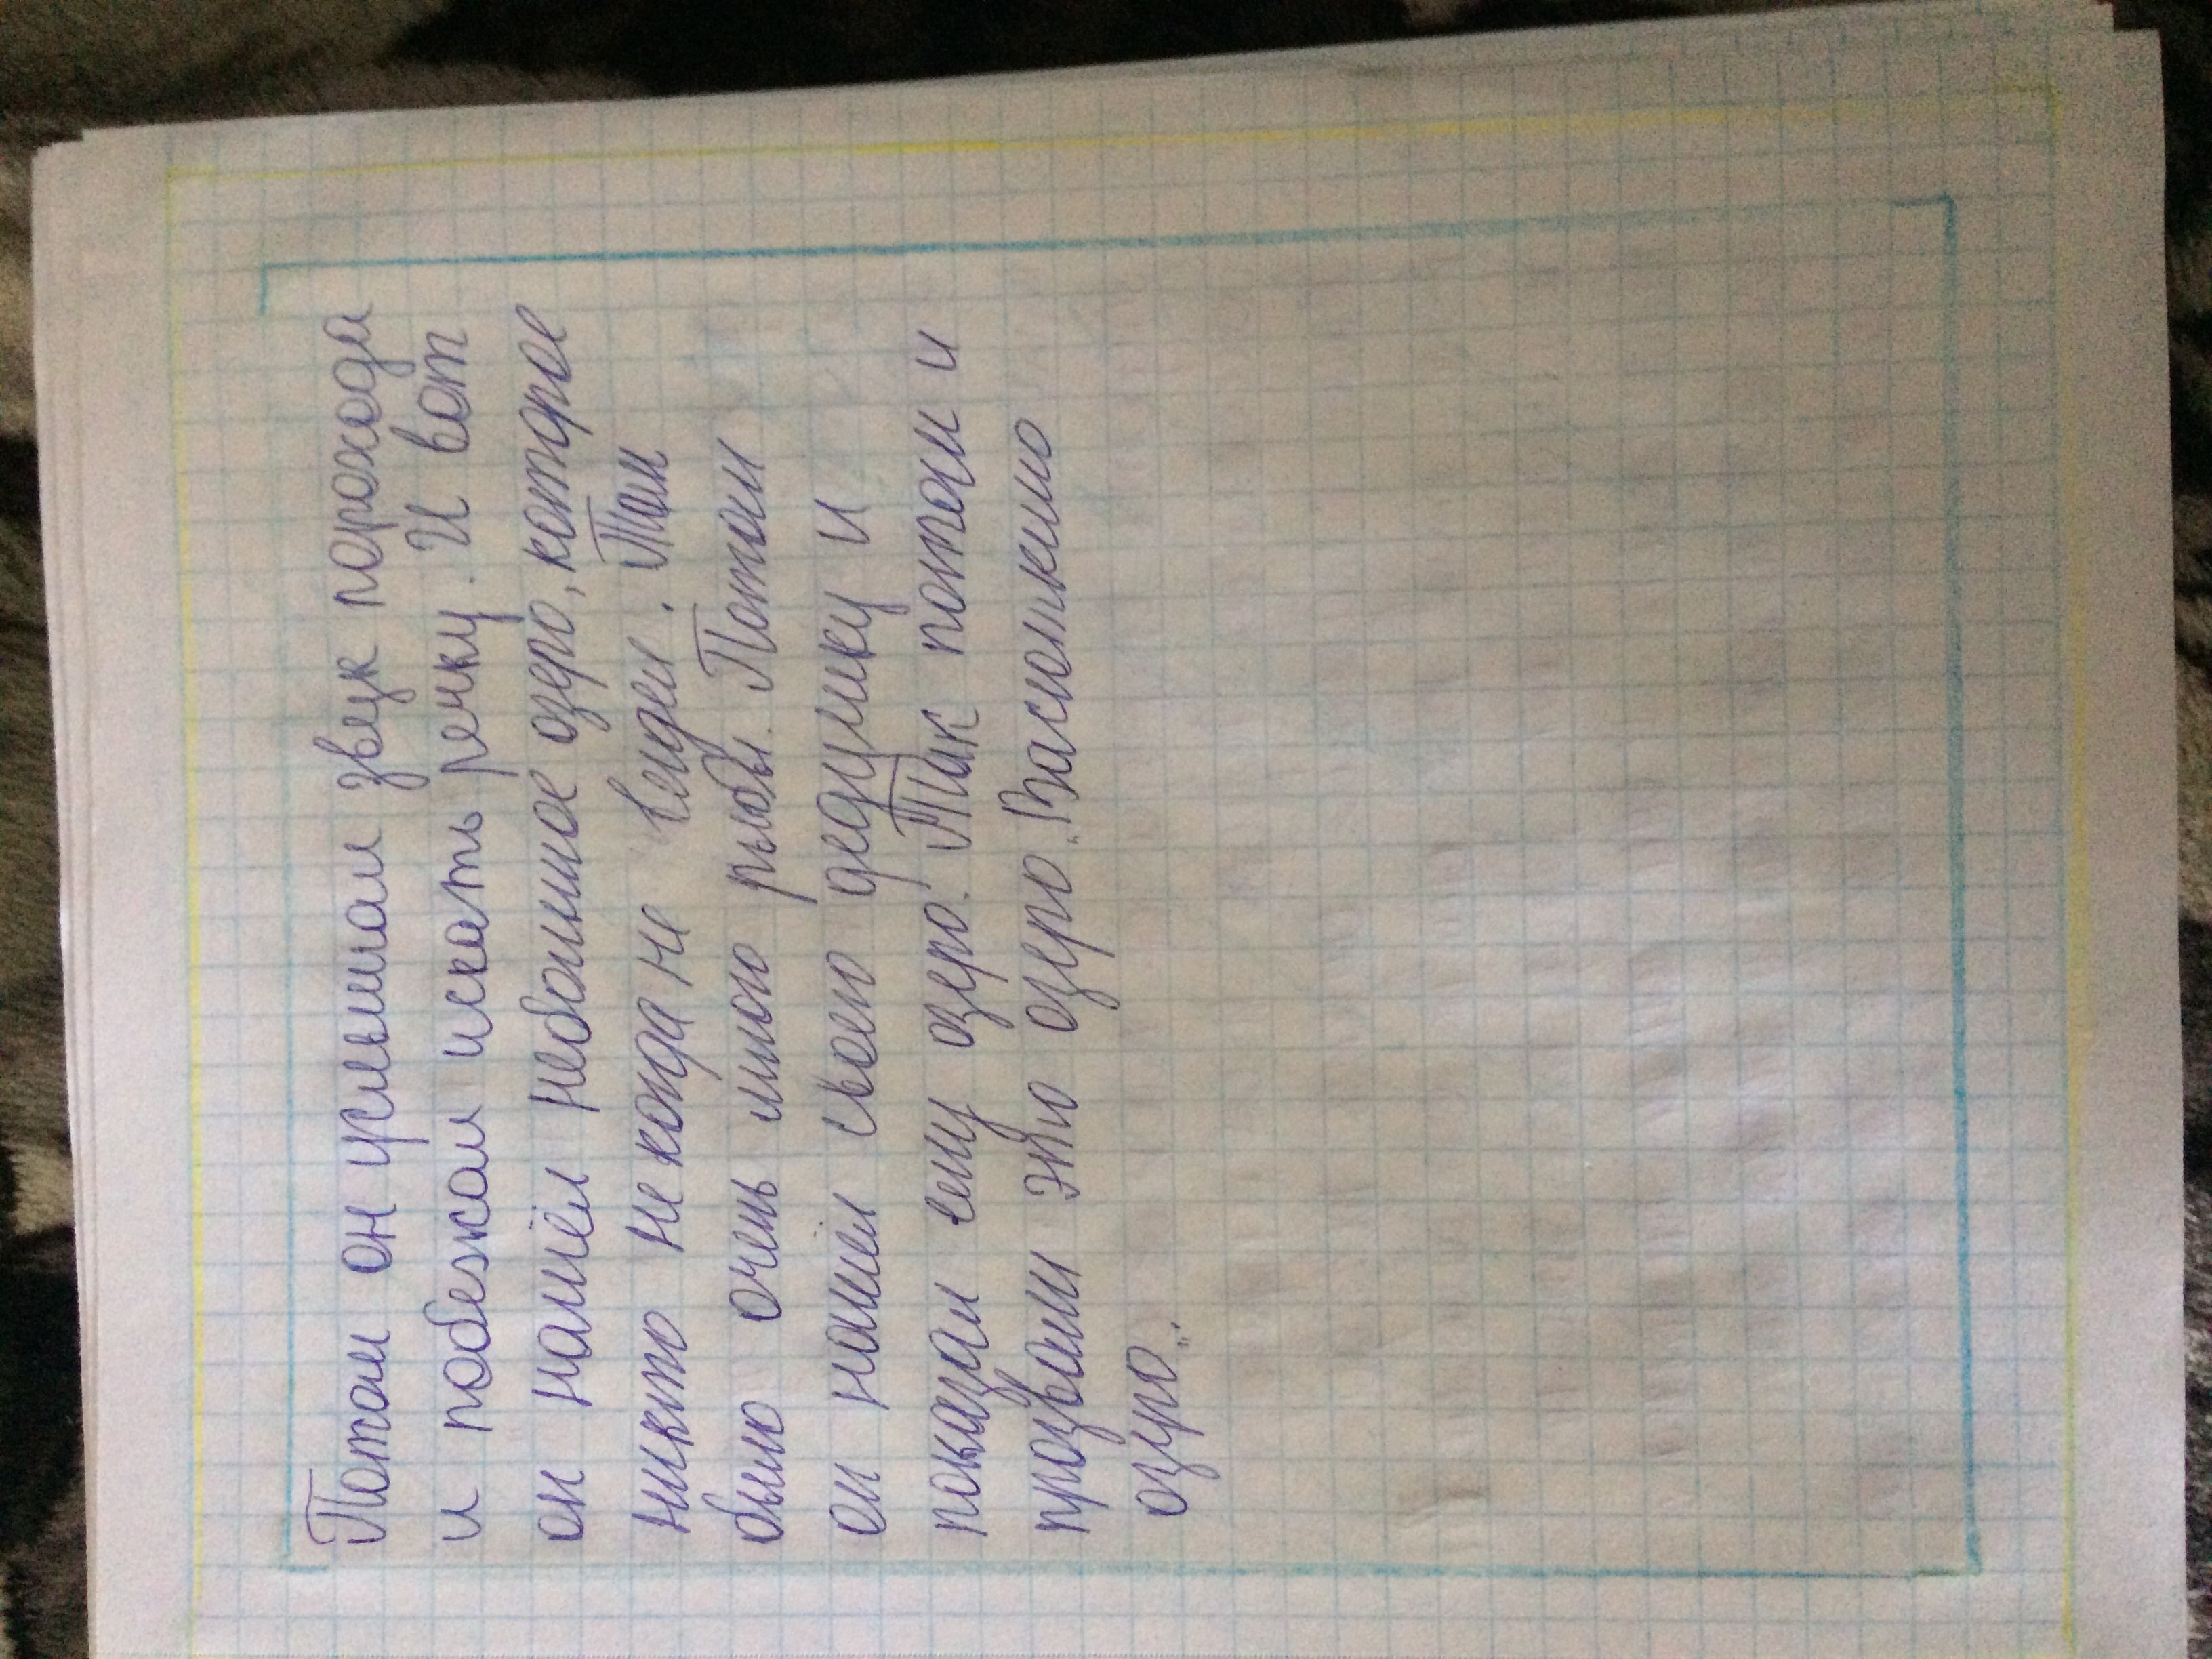 Потом он услышал звук парохода
и побежал искать речку. И вот
он нашёл небольшое озеро, которое
никто не когда не видел. Там
было очень много рыбы. Потом
он нашёл своего дедушку и
показал ему озеро. Так потом и
прозвали это озеро „Васюткино
озро„.